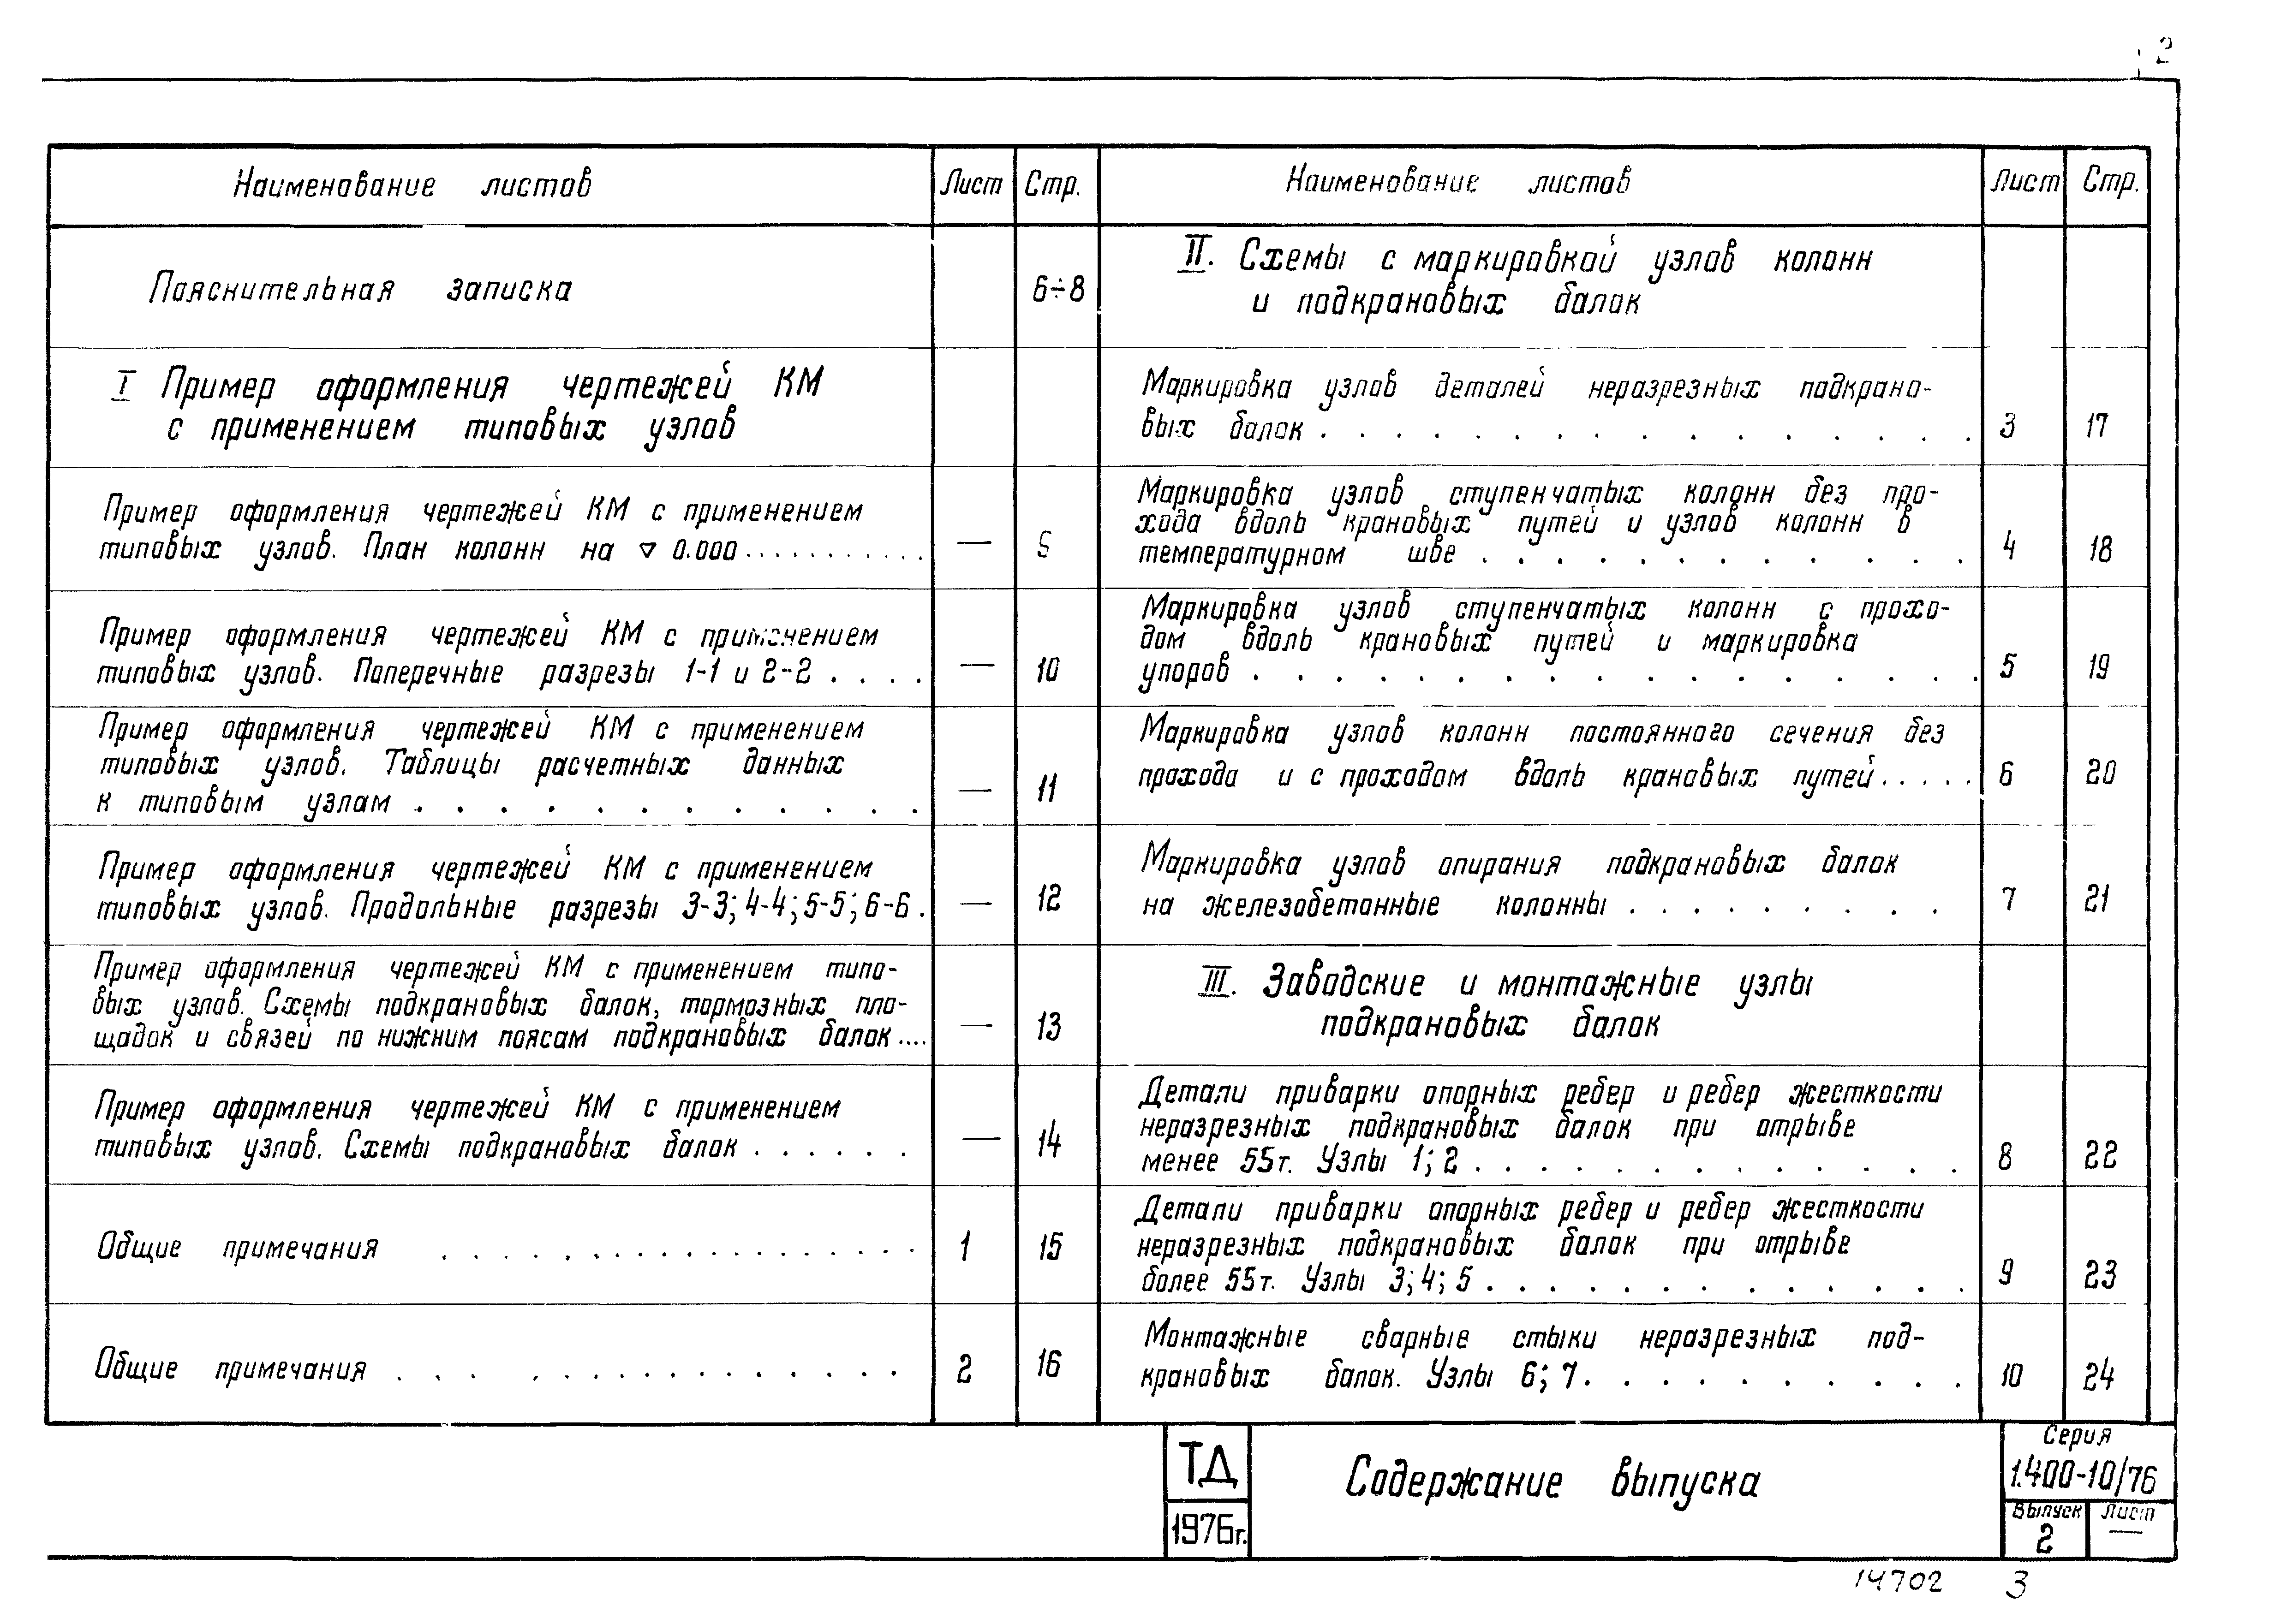 Наименование листов Лист Стр.
Пояснительная записка 6÷8
I Пример оформления чертежей КМ
с применением типовых узлов
Пример оформления чертежей КМ с применением
типовых узлов. План колонн на ▽ 0.000 . . . . . . . . . . . — 9
Пример оформления чертежей КМ с применением
типовых узлов. Поперечные разрезы 1-1 и 2-2 . . . . — 10
Пример оформления чертежей КМ с применением
типовых узлов. Таблицы расчетных данных
к типовым узлам . . . . . . . . . . . — 11
Пример оформления чертежей КМ с применением
типовых узлов. Продольные разрезы 3-3; 4-4; 5-5; 6-6 . — 12
Пример оформления чертежей КМ с применением типо-
вых узлов. Схемы подкрановых балок, тормозных пло-
щадок и связей по нижним поясам подкрановых балок .... — 13
Пример оформления чертежей КМ с применением
типовых узлов. Схемы подкрановых балок . . . . . . — 14
Общие примечания . . . . . . . . . . . . . . . . . 1 15
Общие примечания . . . . . . . . . . . . . . . . 2 16
Наименование листов Лист Стр.
II. Схемы с маркировкой узлов колонн
и подкрановых балок
Маркировка узлов деталей неразрезных подкрано-
вых балок . . . . . . . . . . . . . . . . 3 17
Маркировка узлов ступенчатых колонн без про-
хода вдоль крановых путей и узлов колонн в
температурном шве . . . . . . . . . . . . 4 18
Маркировка узлов ступенчатых колонн с прохо-
дом вдоль крановых путей и маркировка
упоров . . . . . . . . . . . . . . . . . 5 19
Маркировка узлов колонн постоянного сечения без
прохода и с проходом вдоль крановых путей . . . . . 6 20
Маркировка узлов опирания подкрановых балок
на железобетонные колонны . . . . . . . . . 7 21
III. Заводские и монтажные узлы
подкрановых балок
Детали приварки опорных ребер и ребер жесткости
неразрезных подкрановых балок при отрыве
менее 55т. Узлы 1; 2 . . . . . . . . . . . . 8 22
Детали приварки опорных ребер и ребер жесткости
неразрезных подкрановых балок при отрыве
более 55т. Узлы 3; 4; 5 . . . . . . . . . . . . 9 23
Монтажные сварные стыки неразрезных под-
крановых балок. Узлы 6; 7 . . . . . . . . . . 10 24
ТД
1976г.
Содержание выпуска
Серия
1.400-10/76
Выпуск Лист
2 —
14702 3